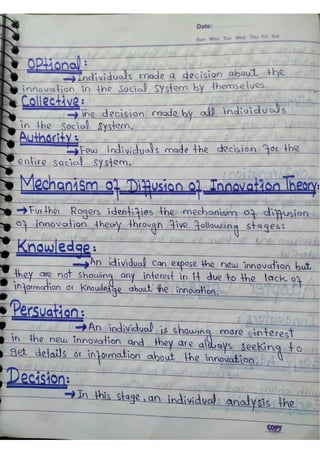 Date:
Sun Mon Tue Wed Thu Fri Sat
Optional:
→ Individuals made a decision about the
innovation in the social system by themselves.
Collective:
→ The decision made by all individuals
in the social system.
Authority:
→ Few individuals made the decision for the
entire social system.
Mechanism of Diffusion of Innovation Theory:
→ Further Rogers identifies the mechanism of diffusion
of innovation theory through five following stages:
Knowledge:
→ An idividual can expose the new innovation but
they are not showing any interest in it due to the lack of
information or knowledge about the innovation.
Persuation:
→ An individual is showing more interest
in the new innovation and they are always seeking to
get details or information about the innovation.
Decision:
→ In this stage, an individual analysis the
COPY